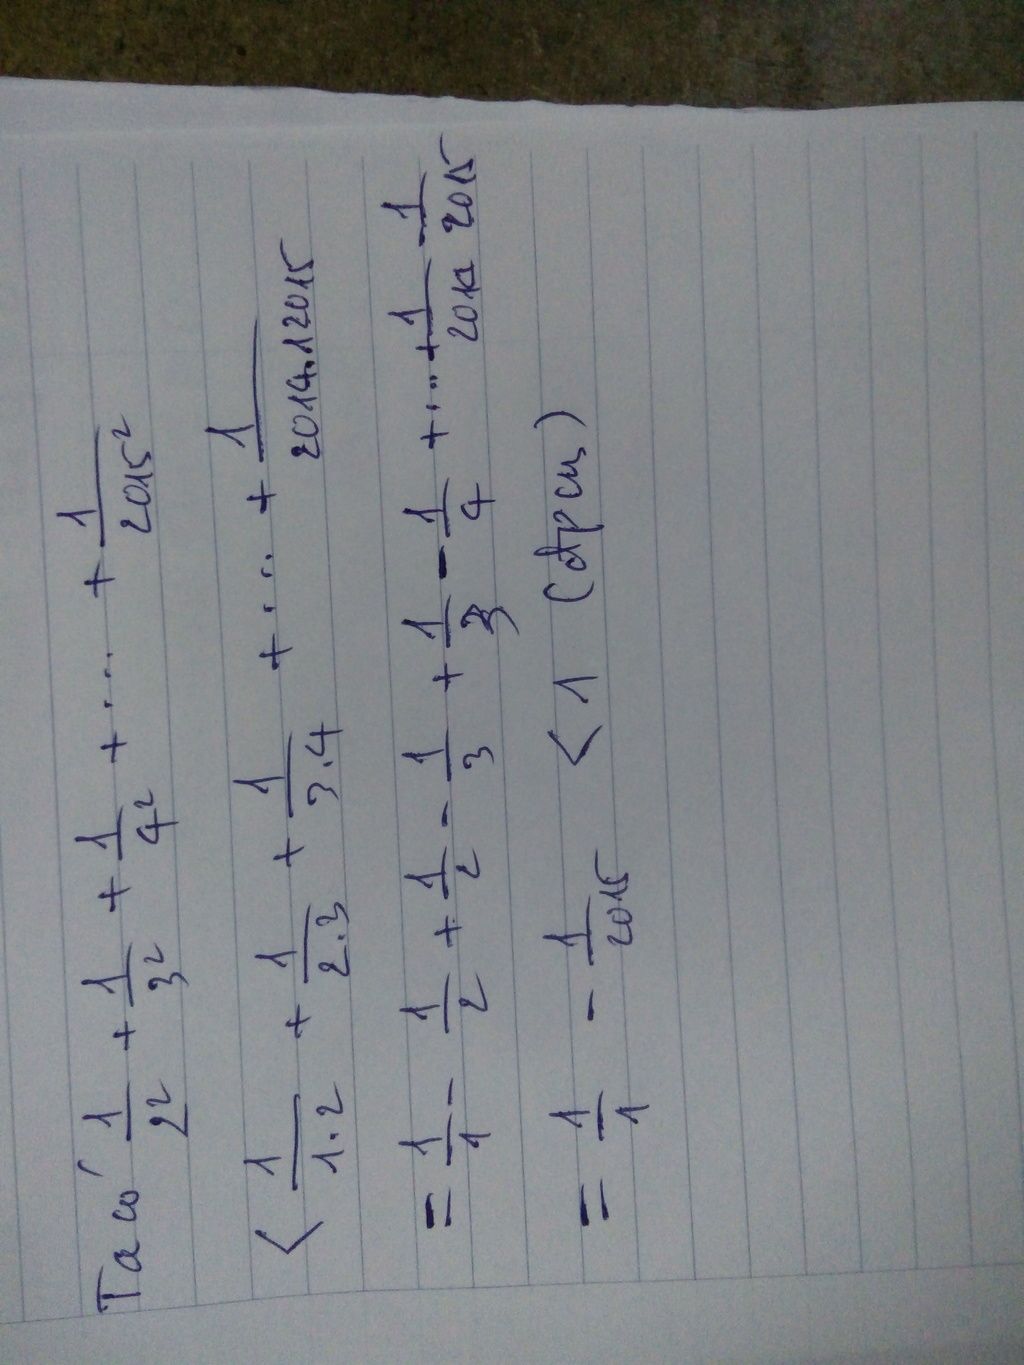 Ta có 1/2² + 1/3² + 1/4² + ... + 1/2015²
< 1/1.2 + 1/2.3 + 1/3.4 + ... + 1/2014.12015
= 1/1 - 1/2 + 1/2 - 1/3 + 1/3 - 1/4 + ... + 1/2014 - 1/2015
= 1/1 - 1/2015 < 1 (đpcm)